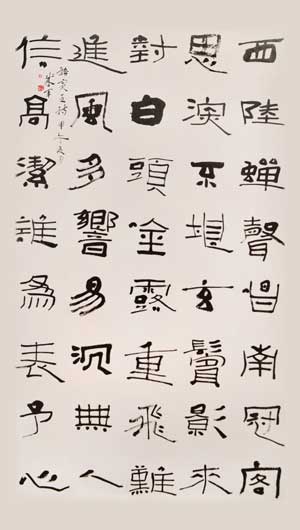 西陸蟬聲唱南冠客
思深不堪玄鬢影來
對白頭唫露重飛難
進風多響易沉無人
信髙潔誰為表予心
駱賓王詩甲午